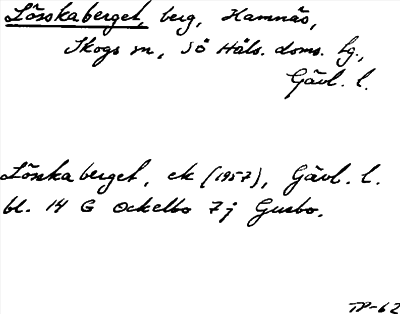 Lösskaberget, berg, Hamnäs,
Skogs sn, Sö Häls. doms. lg.,
Gävl. l.
Lösskaberget, ek (1957), Gävl. l.
bl. 14 G Ockelbo 7j Gusbo.
TP-62